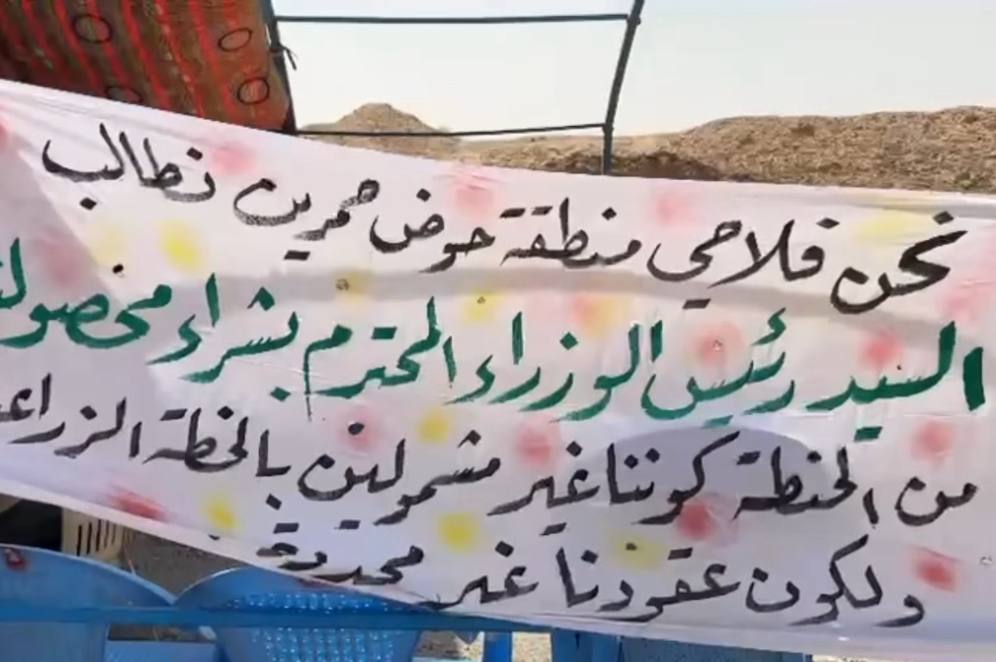 نحن فلاحي منطقة حوض حمرين نطالب
السيد رئيس الوزراء المحترم بشراء
من الحنطة كوننا غير مشمولين بالخطة
ولكون عقودنا غير مجددة